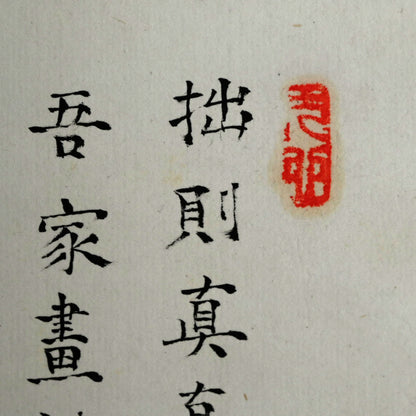 拙則真
吾家畫